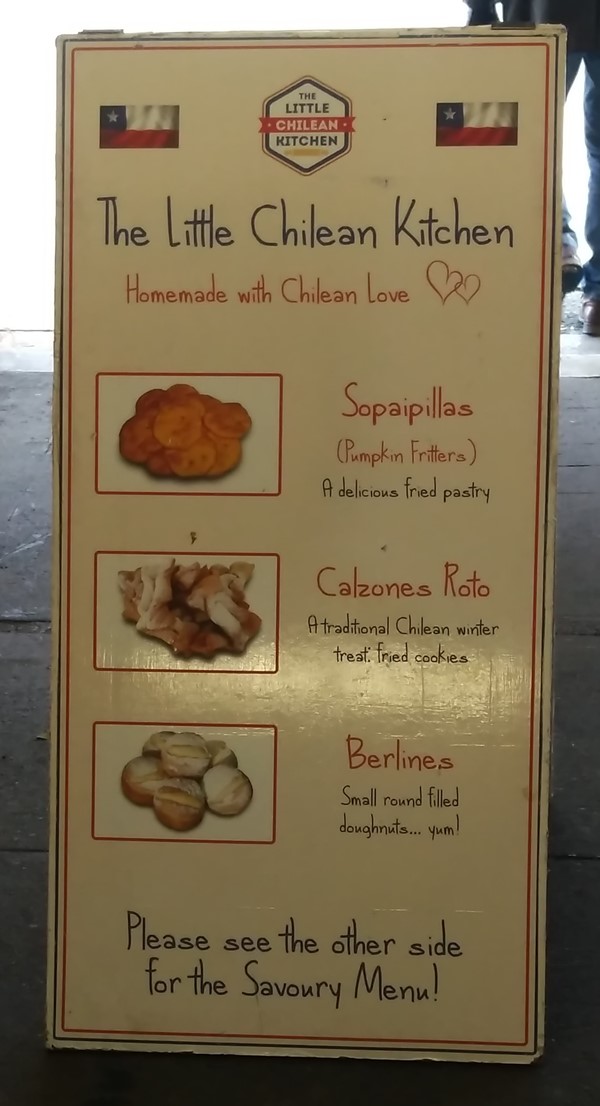 THE
LITTLE
CHILEAN
KITCHEN
The Little Chilean Kitchen
Homemade with Chilean Love
Sopaipillas
(Pumpkin Fritters)
A delicious fried pastry
Calzones Roto
A traditional Chilean winter
treat: fried cookies
Berlines
Small round filled
doughnuts... yum!
Please see the other side
for the Savoury Menu!